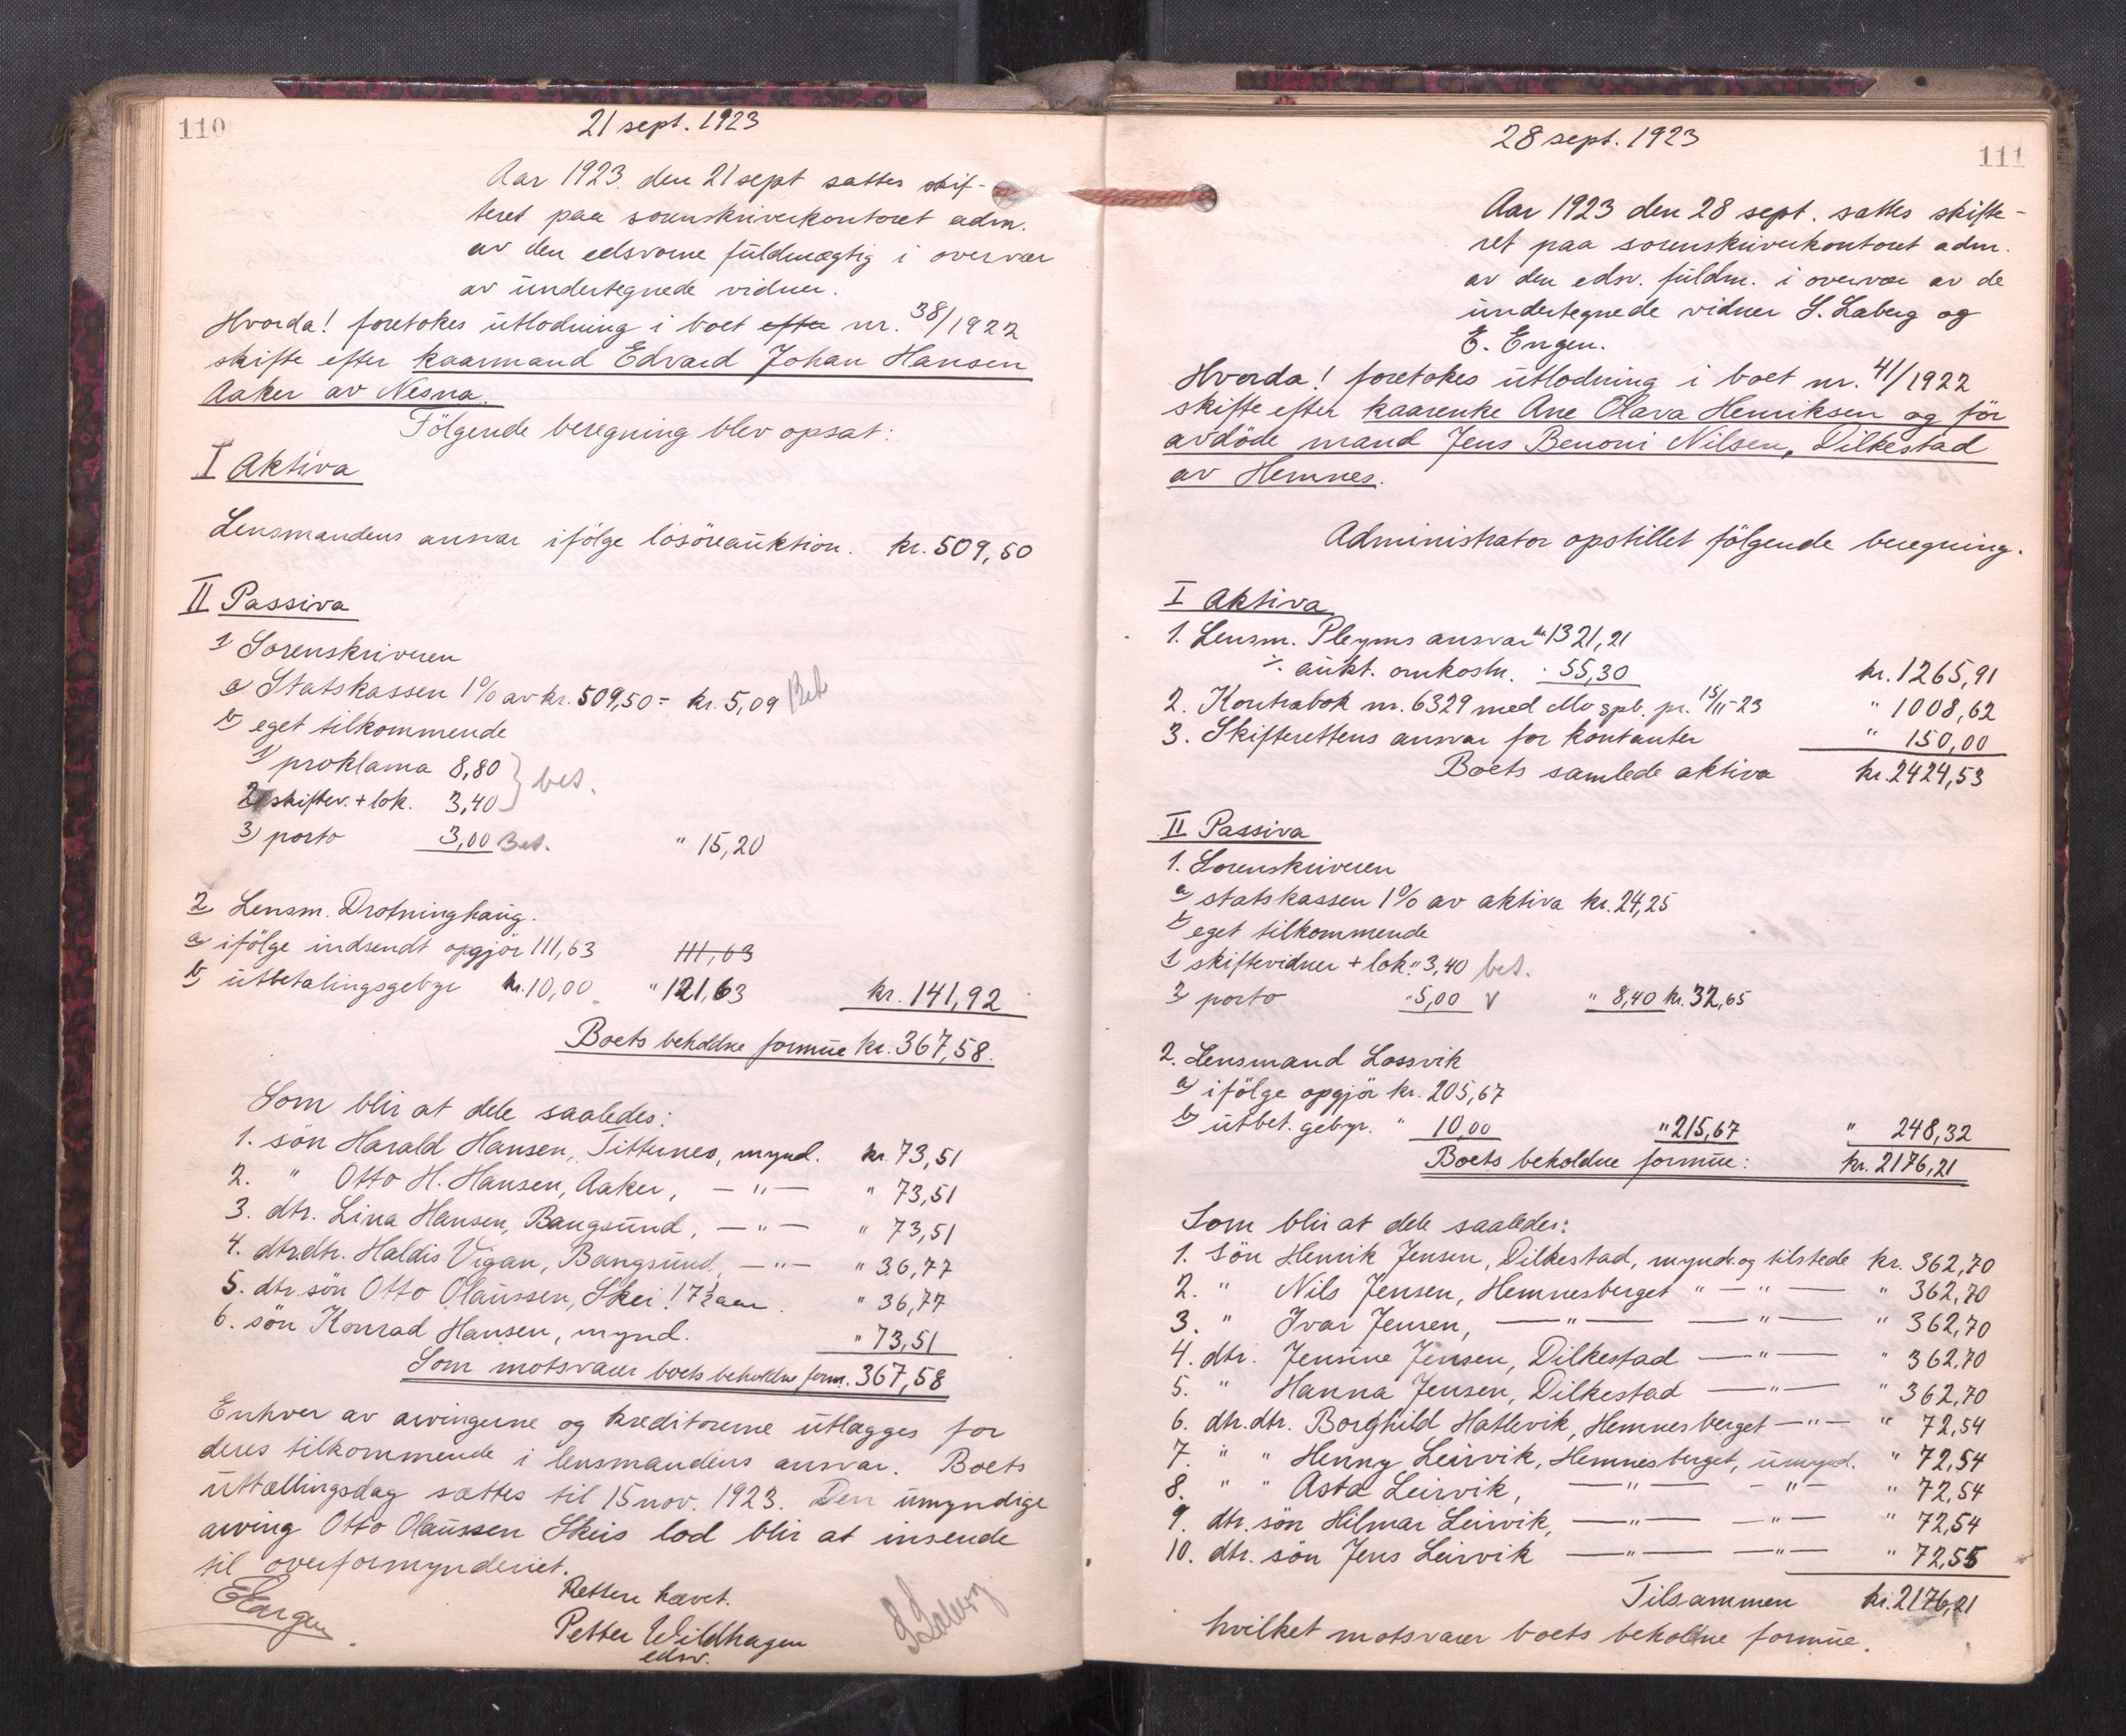 110
21 sept. 1923
Aar 1923 den 21 sept sattes skif-
teret paa sorenskriverkontoret adm.
av den edsvorne fuldmægtig i overvær
av undertegnede vidner.
Hvorda! foretokes utlodning i boet efter nr. 38/1922
skifte efter kaarmand Edvard Johan Hansen
Aaker av Nesna.
Følgende beregning blev opsat:
I Aktiva
Lensmandens ansvar ifölge lösöreauktion. kr. 509,50
II Passiva
1 Sorenskriveren
a Statskassen 1% av kr. 509,50 = kr. 5,09 Bet
b eget tilkommende
1) proklama 8,80
2) skiftev. + lok. 3,40 } bet.
3) porto 3,00 Bet. " 15,20
2 Lensm. Drotninghaug.
a ifölge indsendt opgjör 111,63 111,63
b utbetalingsgebyr kr. 10,00 " 121,63 kr. 141,92
Boets beholdne formue kr. 367,58.
Som blir at dele saaledes:
1. sön Harald Hansen, Titternes, mynd. kr. 73,51
2. " Otto H. Hansen, Aaker, — " — " 73,51
3. dtr. Lina Hansen, Bangsund, — " — " 73,51
4. dtr.dtr. Haldis Vigan, Bangsund, — " — " 36,77
5. dtr. sön Otto Olaussen, Skei 17½ aar. " 36,77
6. sön Konrad Hansen, mynd. " 73,51
Som motsvarer boets beholdne form. 367,58
Enhver av arvingerne og kreditorerne utlægges for
deres tilkommende i lensmandens ansvar. Boets
uttællingsdag sættes til 15 nov. 1923. Den umyndige
arving Otto Olaussen Skeis lod blir at insende
til overformynderiet.
Retten hævet.
E Engen
Petter Wildhagen
edsv.
S Laberg
28 sept. 1923
111
Aar 1923 den 28 sept. sattes skifte-
ret paa sorenskriverkontoret adm.
av den edsv. fuldm. i overvær av de
undertegnede vidner S. Laberg og
E. Engen.
Hvorda! foretokes utlodning i boet nr. 41/1922
skifte efter kaarenke Ane Olava Henriksen og för
avdöde mand Jens Benoni Nilsen, Dilkestad
av Hemnes.
Administrator opstillet fölgende beregning.
I Aktiva
1. Lensm. Pleyms ansvar kr. 1321,21
÷ aukt. omkostn. " 55,30 kr. 1265,91
2. Kontrabok nr. 6329 med Mo spb. pr. 15/11-23 " 1008,62
3. Skifterettens ansvar for kontanter " 150,00
Boets samlede aktiva kr. 2424,53
II Passiva
1. Sorenskriveren
a statskassen 1% av aktiva kr. 24,25
b eget tilkommende
1 skiftevidner + lok. " 3,40 bet.
2 porto " 5,00 v " 8,40 kr. 32,65
2. Lensmand Lossvik
a) ifölge opgjör kr. 205,67
b) utbet. gebyr. " 10,00 " 215,67 " 248,32
Boets beholdne formue: kr. 2176,21
Som blir at dele saaledes:
1. Sön Henrik Jensen, Dilkestad, mynd. og tilstede kr. 362,70
2. " Nils Jensen, Hemnesberget " — " — " 362,70
3. " Ivar Jensen, — " — — " — " 362,70
4. dtr. Jensine Jensen, Dilkestad — " — " 362,70
5. " Hanna Jensen, Dilkestad — " — " 362,70
6. dtr.dtr. Borghild Hatlevik, Hemnesberget — " — " 72,54
7. " " Henny Leirvik, Hemnesberget, umynd. " 72,54
8. " " Asta Leirvik, — " — — " — " 72,54
9. dtr. sön Hilmar Leirvik, — " — — " — " 72,54
10. dtr. sön Jens Leirvik — " — — " — " 72,55
Tilsammen kr. 2176,21
hvilket motsvarer boets beholdne formue.